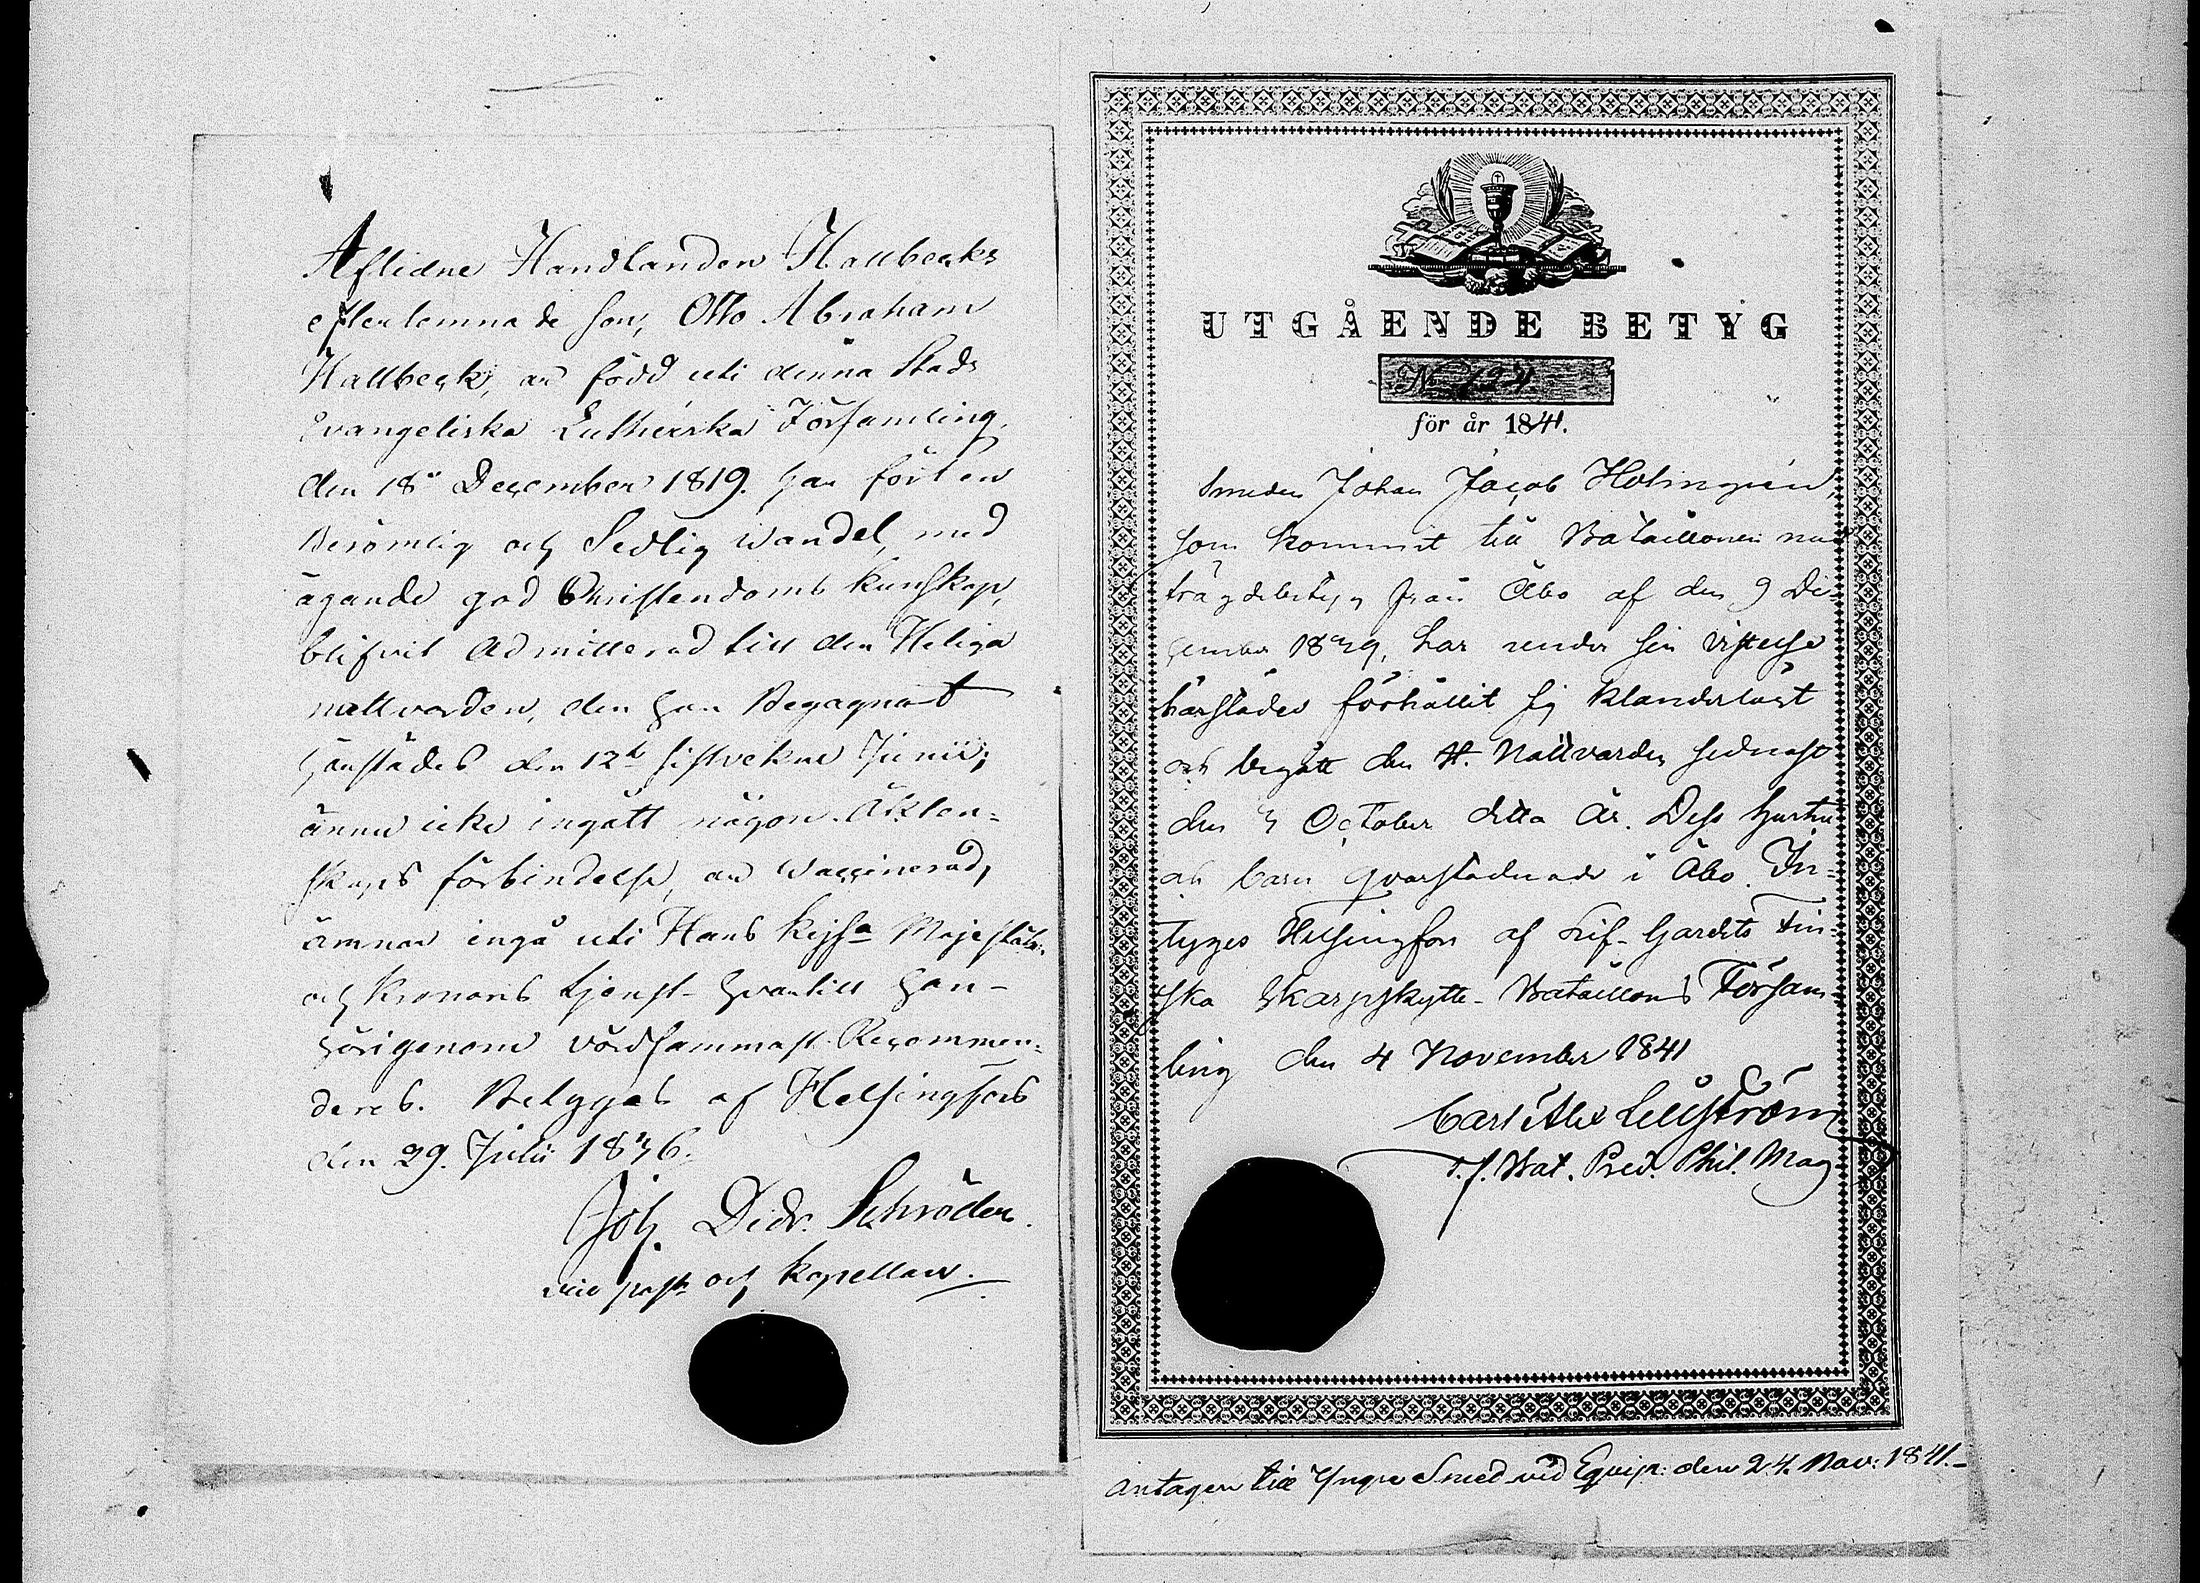 Aflidne Handlanden Hallbecks
efterlemnade son, Otto Abraham
Hallbeck, är född uti denna Stads
Evangeliska Lutherska Församling,
den 18de December 1819. har fört en
Berömlig och Sedlig Wandel, med
ägande god Christendoms kunskap,
blifvit Admitterad till den Heliga
nattvarden, den han Begagnat
härstädes den 12te sistvekne Junii,
ännu icke ingått någon Äkten-
skaps förbindelse, är Waccinerad,
ämnar ingå uti Hans Kejsa Majestäts
och Kronans tjenst hvartill han
härigenom vördsammast Recommen-
deres. Betygas af Helsingfors
den 29. Julii 1836.
Joh. Didr. Schröder.
vice past. och Kapellan.
UTGÅENDE BETYG
No 124.
för år 1841.
Smeden Johan Jacob Holmgrén,
som kommit till Bataillonen med
frägdebetyg från Åbo af den 9 De-
cember 1839, har under sin vistelse
härstädes förhållit sig klanderlöst
och begått den H. Nattvarden sednast
den 3 October detta år. Dess hustru
och barn qvarstadnade i Åbo. In-
tyges Helsingfors af Lif-Gardets Fin-
ska Skarpskytte-Bataillons Försam-
ling den 4 November 1841
Carl Alex
t.f. Bat. Pred. Phil. Mag
antagen till Yngre Smed vid Equip: den 24. Nov: 1841.